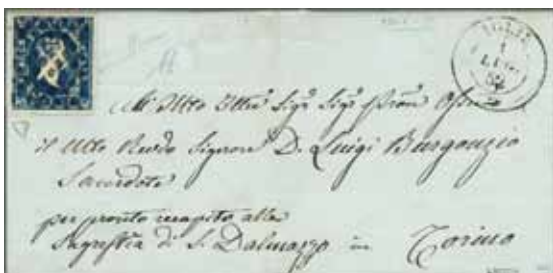 AGLIÈ
1
LUG.
52
All Molto Illre Sigr Sigr Pron Oss
il Molto Revdo Signore D. Luigi Burgonzio
Sacerdote
per pronto recapito alla
Sagrestia di S. Dalmazzo in Torino